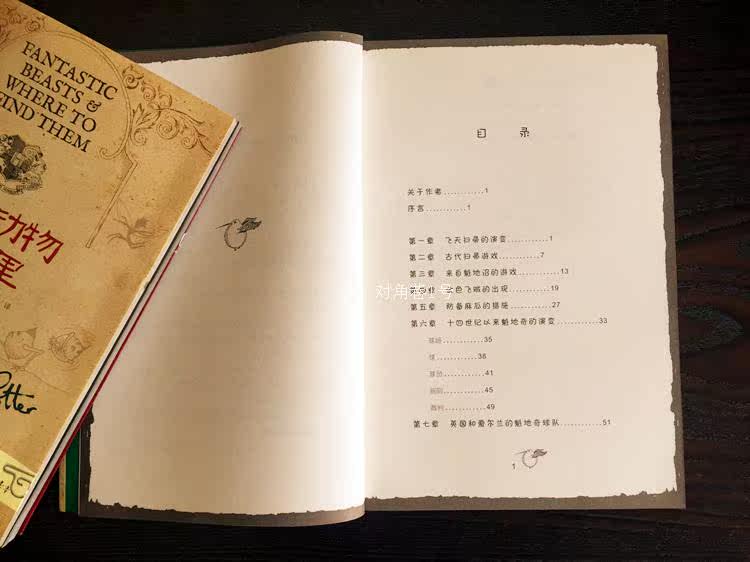 FANTASTIC
BEASTS &
WHERE TO
FIND THEM
动物
里
译
目 录
关于作者............1
序言............1
第一章 飞天扫帚的演变............1
第二章 古代扫帚游戏............7
第三章 来自魁地沼的游戏............13
第四章 金色飞贼的出现............19
第五章 防备麻瓜的措施............27
第六章 十四世纪以来魁地奇的演变............33
球场............35
球............38
球员............41
规则............45
裁判............49
第七章 英国和爱尔兰的魁地奇球队............51
1
对角巷1号